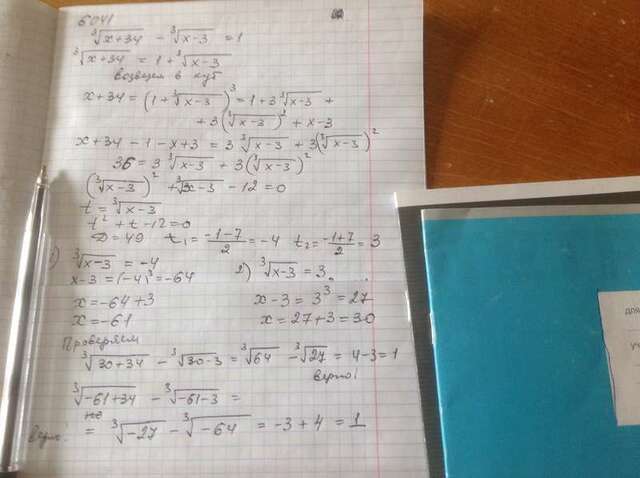 6041
∛(x+34) − ∛(x−3) = 1
∛(x+34) = 1 + ∛(x−3)
возведем в куб
x+34 = (1+∛(x−3))³ = 1+3∛(x−3) +
+ 3(∛(x−3))² + x−3
x+34−1−x+3 = 3∛(x−3) + 3(∛(x−3))²
36 = 3∛(x−3) + 3(∛(x−3))²
(∛(x−3))² + ∛(x−3) − 12 = 0
t = ∛(x−3)
t² + t − 12 = 0
D = 49 t₁ = (−1−7)/2 = −4 t₂ = (−1+7)/2 = 3
1) ∛(x−3) = −4
x−3 = (−4)³ = −64
x = −64+3
x = −61
2) ∛(x−3) = 3
x−3 = 3³ = 27
x = 27+3 = 30
Проверяем
∛(30+34) − ∛(30−3) = ∛64 − ∛27 = 4−3 = 1
верно!
∛(−61+34) − ∛(−61−3) =
= ∛(−27) − ∛(−64) = −3+4 = 1
Верно!
для
уч